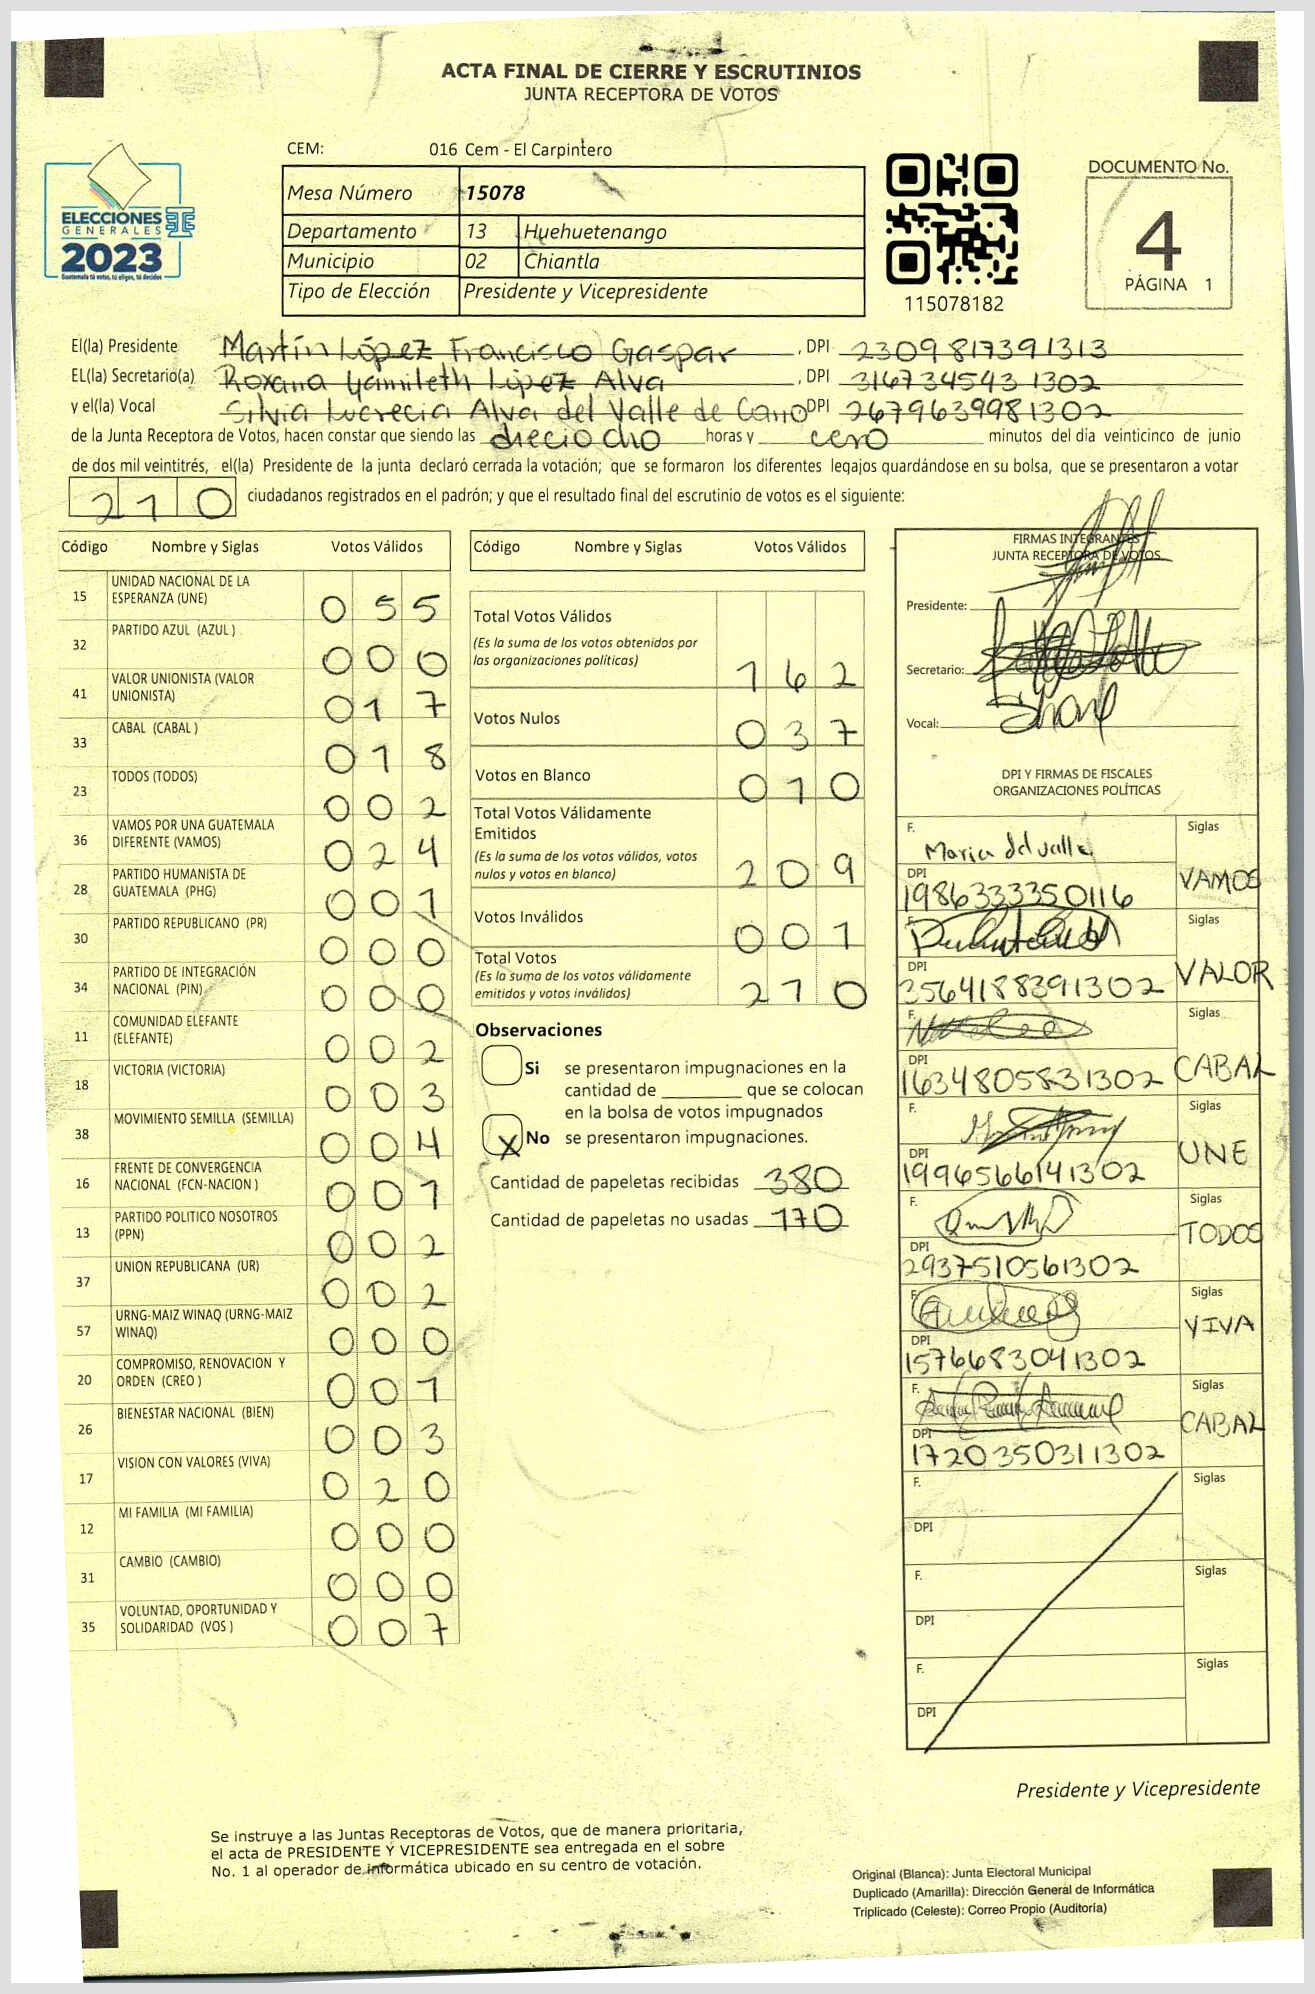 ACTA FINAL DE CIERRE Y ESCRUTINIOS
JUNTA RECEPTORA DE VOTOS
CEM: 016 Cem - El Carpintero
ELECCIONES
GENERALES
2023
Guatemala tú votas, tú eliges, tú decides
Mesa Número 15078
Departamento 13 Huehuetenango
Municipio 02 Chiantla
Tipo de Elección Presidente y Vicepresidente
115078182
DOCUMENTO No.
4
PÁGINA 1
El(la) Presidente Martín López Francisco Gaspar, DPI 2309817391313
EL(la) Secretario(a) Roxana Yamileth López Alva, DPI 3167345431302
y el(la) Vocal Silvia Lucrecia Alva del Valle de Cano DPI 2679639981302
de la Junta Receptora de Votos, hacen constar que siendo las dieciocho horas y cero minutos del día veinticinco de junio
de dos mil veintitrés, el(la) Presidente de la junta declaró cerrada la votación; que se formaron los diferentes legajos guardándose en su bolsa, que se presentaron a votar
210 ciudadanos registrados en el padrón; y que el resultado final del escrutinio de votos es el siguiente:
Código Nombre y Siglas Votos Válidos
15 UNIDAD NACIONAL DE LA ESPERANZA (UNE) 055
32 PARTIDO AZUL (AZUL ) 000
41 VALOR UNIONISTA (VALOR UNIONISTA) 017
33 CABAL (CABAL ) 018
23 TODOS (TODOS) 002
36 VAMOS POR UNA GUATEMALA DIFERENTE (VAMOS) 024
28 PARTIDO HUMANISTA DE GUATEMALA (PHG) 001
30 PARTIDO REPUBLICANO (PR) 000
34 PARTIDO DE INTEGRACIÓN NACIONAL (PIN) 000
11 COMUNIDAD ELEFANTE (ELEFANTE) 002
18 VICTORIA (VICTORIA) 003
38 MOVIMIENTO SEMILLA (SEMILLA) 004
16 FRENTE DE CONVERGENCIA NACIONAL (FCN-NACION ) 001
13 PARTIDO POLITICO NOSOTROS (PPN) 002
37 UNION REPUBLICANA (UR) 002
57 URNG-MAIZ WINAQ (URNG-MAIZ WINAQ) 000
20 COMPROMISO, RENOVACION Y ORDEN (CREO ) 001
26 BIENESTAR NACIONAL (BIEN) 003
17 VISION CON VALORES (VIVA) 020
12 MI FAMILIA (MI FAMILIA) 000
31 CAMBIO (CAMBIO) 000
35 VOLUNTAD, OPORTUNIDAD Y SOLIDARIDAD (VOS ) 007
Código Nombre y Siglas Votos Válidos
Total Votos Válidos
(Es la suma de los votos obtenidos por
las organizaciones políticas) 162
Votos Nulos 037
Votos en Blanco 010
Total Votos Válidamente
Emitidos
(Es la suma de los votos válidos, votos
nulos y votos en blanco) 209
Votos Inválidos 001
Total Votos
(Es la suma de los votos válidamente
emitidos y votos inválidos) 210
Observaciones
Si se presentaron impugnaciones en la
cantidad de ________ que se colocan
en la bolsa de votos impugnados
X No se presentaron impugnaciones.
Cantidad de papeletas recibidas 380
Cantidad de papeletas no usadas 170
FIRMAS INTEGRANTES
JUNTA RECEPTORA DE VOTOS
Presidente:
Secretario:
Vocal:
DPI Y FIRMAS DE FISCALES
ORGANIZACIONES POLÍTICAS
F. Maria del valle Siglas
DPI 1986333350116 VAMOS
F. Siglas
DPI 3564188391302 VALOR
F. Siglas
DPI 1634805831302 CABAL
F. Siglas
DPI 1996566141302 UNE
F. Siglas
DPI 2937510561302 TODOS
F. Siglas
DPI 1576683041302 VIVA
F. Siglas
DPI 1720350311302 CABAL
F. Siglas
DPI
F. Siglas
DPI
F. Siglas
DPI
Presidente y Vicepresidente
Se instruye a las Juntas Receptoras de Votos, que de manera prioritaria,
el acta de PRESIDENTE Y VICEPRESIDENTE sea entregada en el sobre
No. 1 al operador de informática ubicado en su centro de votación.
Original (Blanca): Junta Electoral Municipal
Duplicado (Amarilla): Dirección General de Informática
Triplicado (Celeste): Correo Propio (Auditoría)